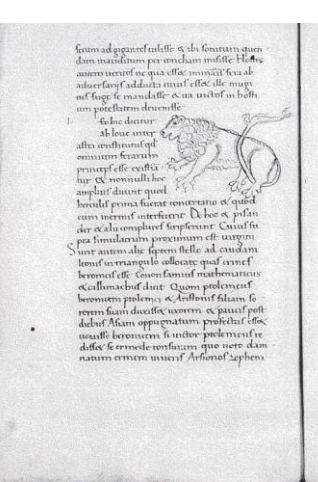 secum ad gigantes tulisse & ibi sonitum quen
dam inauditum per concham misisse Hostes
autem ueritos ne qua esset immanis fera ab
aduersariis adducta cuius esset ille mugi
tus fugę se mandasse & ita uictos in hosti
um potestatem deuenisse
Leo hic dicitur
ab Ioue inter
astra constitutus qd
omnium ferarum
princeps esse existima
tur & nonnulli hoc
amplius dicunt quod
herculis prima fuerat concertatio & quod
eum inermis interfecerit De hoc & pisan
der & alii complures scripserunt Cuius su
pra simulacrum proximum est uirgini
Sunt autem alię septem stellę ad caudam
leonis in triangulo collocatę quas crines
beronices esse Conon samius mathematicus
& callimachus dicit Quom ptolemeus
beronicem ptolemei & Arsinois filiam so
rorem suam duxisset uxorem & paucis post
diebus Asiam oppugnatum profectus esset
uouisse beronicem si uictor ptolemeus re
disset se crinem detonsuram quo uoto dam
natum crinem ueneris Arsinoes Zephyri